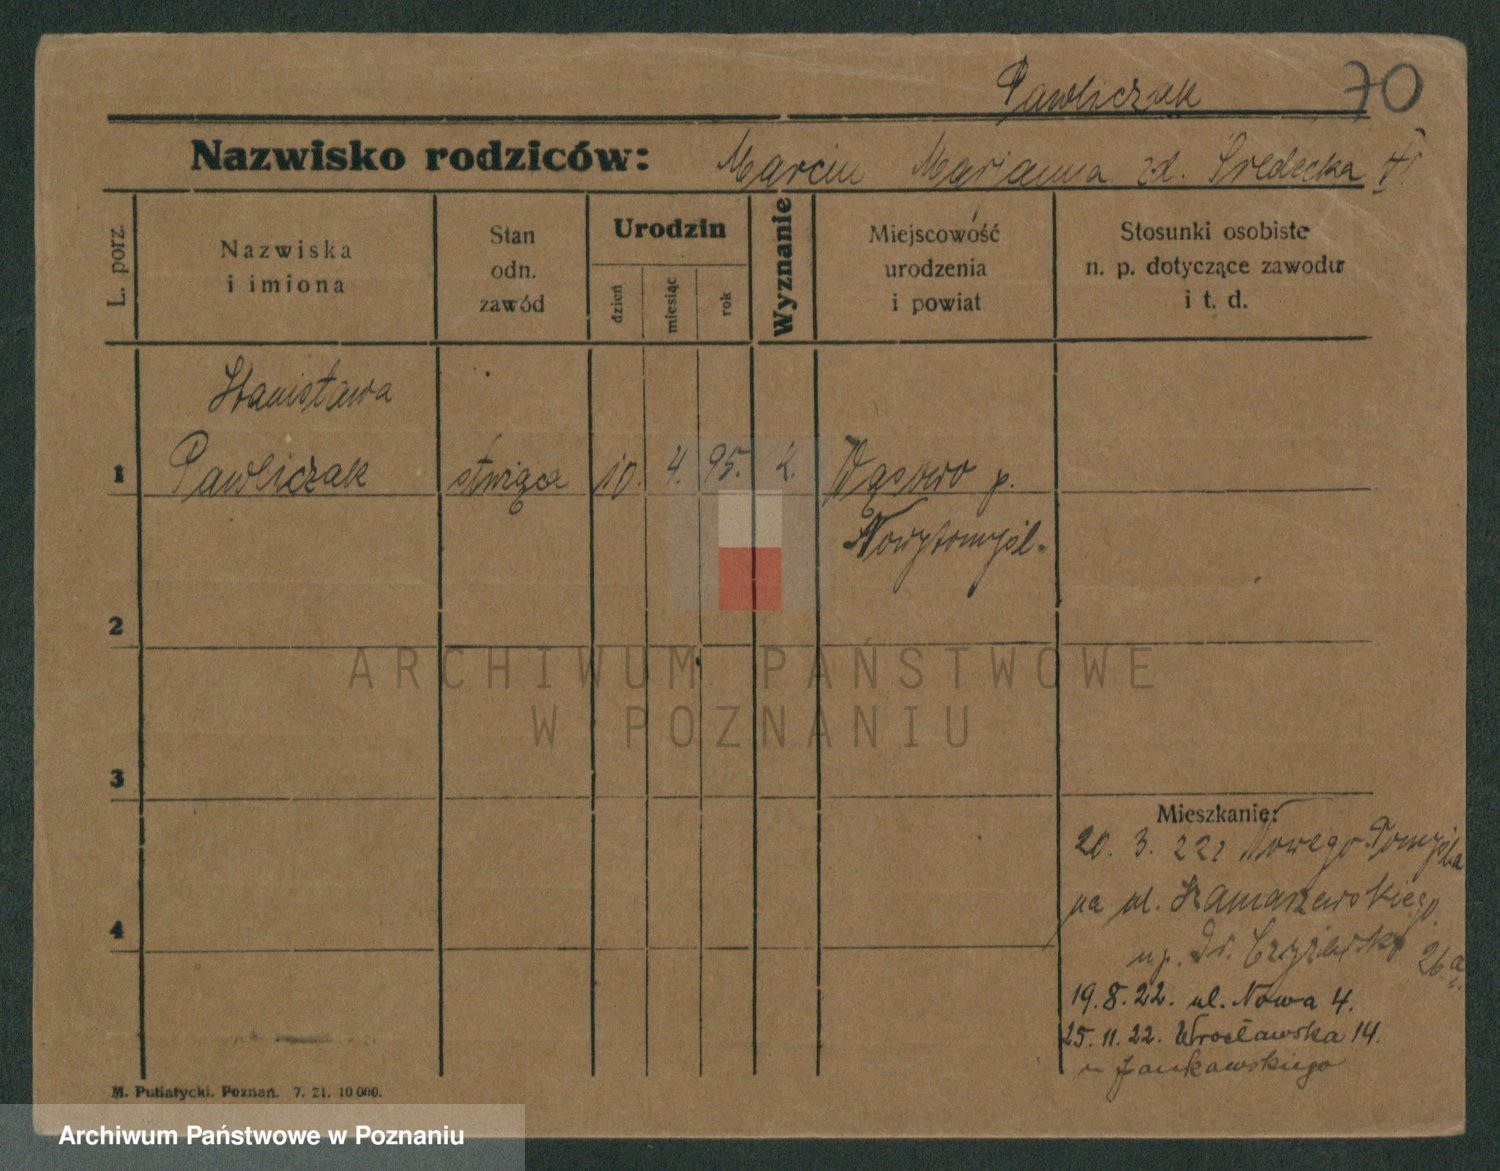 Pawliczak 70
Nazwisko rodziców: Marcin Marjanna zd. Średecka
L. porz.
Nazwiska
i imiona
Stan
odn.
zawód
Urodzin
dzień
miesiąc
rok
Wyznanie
Miejscowość
urodzenia
i powiat
Stosunki osobiste
n. p. dotyczące zawodu
i t. d.
Stanisława
1 Pawliczak służąca 10. 4. 95. k. Wąsowo p.
Nowytomyśl.
2
ARCHIWUM PAŃSTWOWE
W POZNANIU
3
Mieszkanie:
20. 3. 22 z Nowego-Tomyśla
na ul. Szamarzewskiego
u p. Dr. 26a
19. 8. 22. ul. Nowa 4.
25. 11. 22. Wrocławska 14.
Jankawskiego
4
M. Putiatycki. Poznań. 7. 21. 10 000.
Archiwum Państwowe w Poznaniu